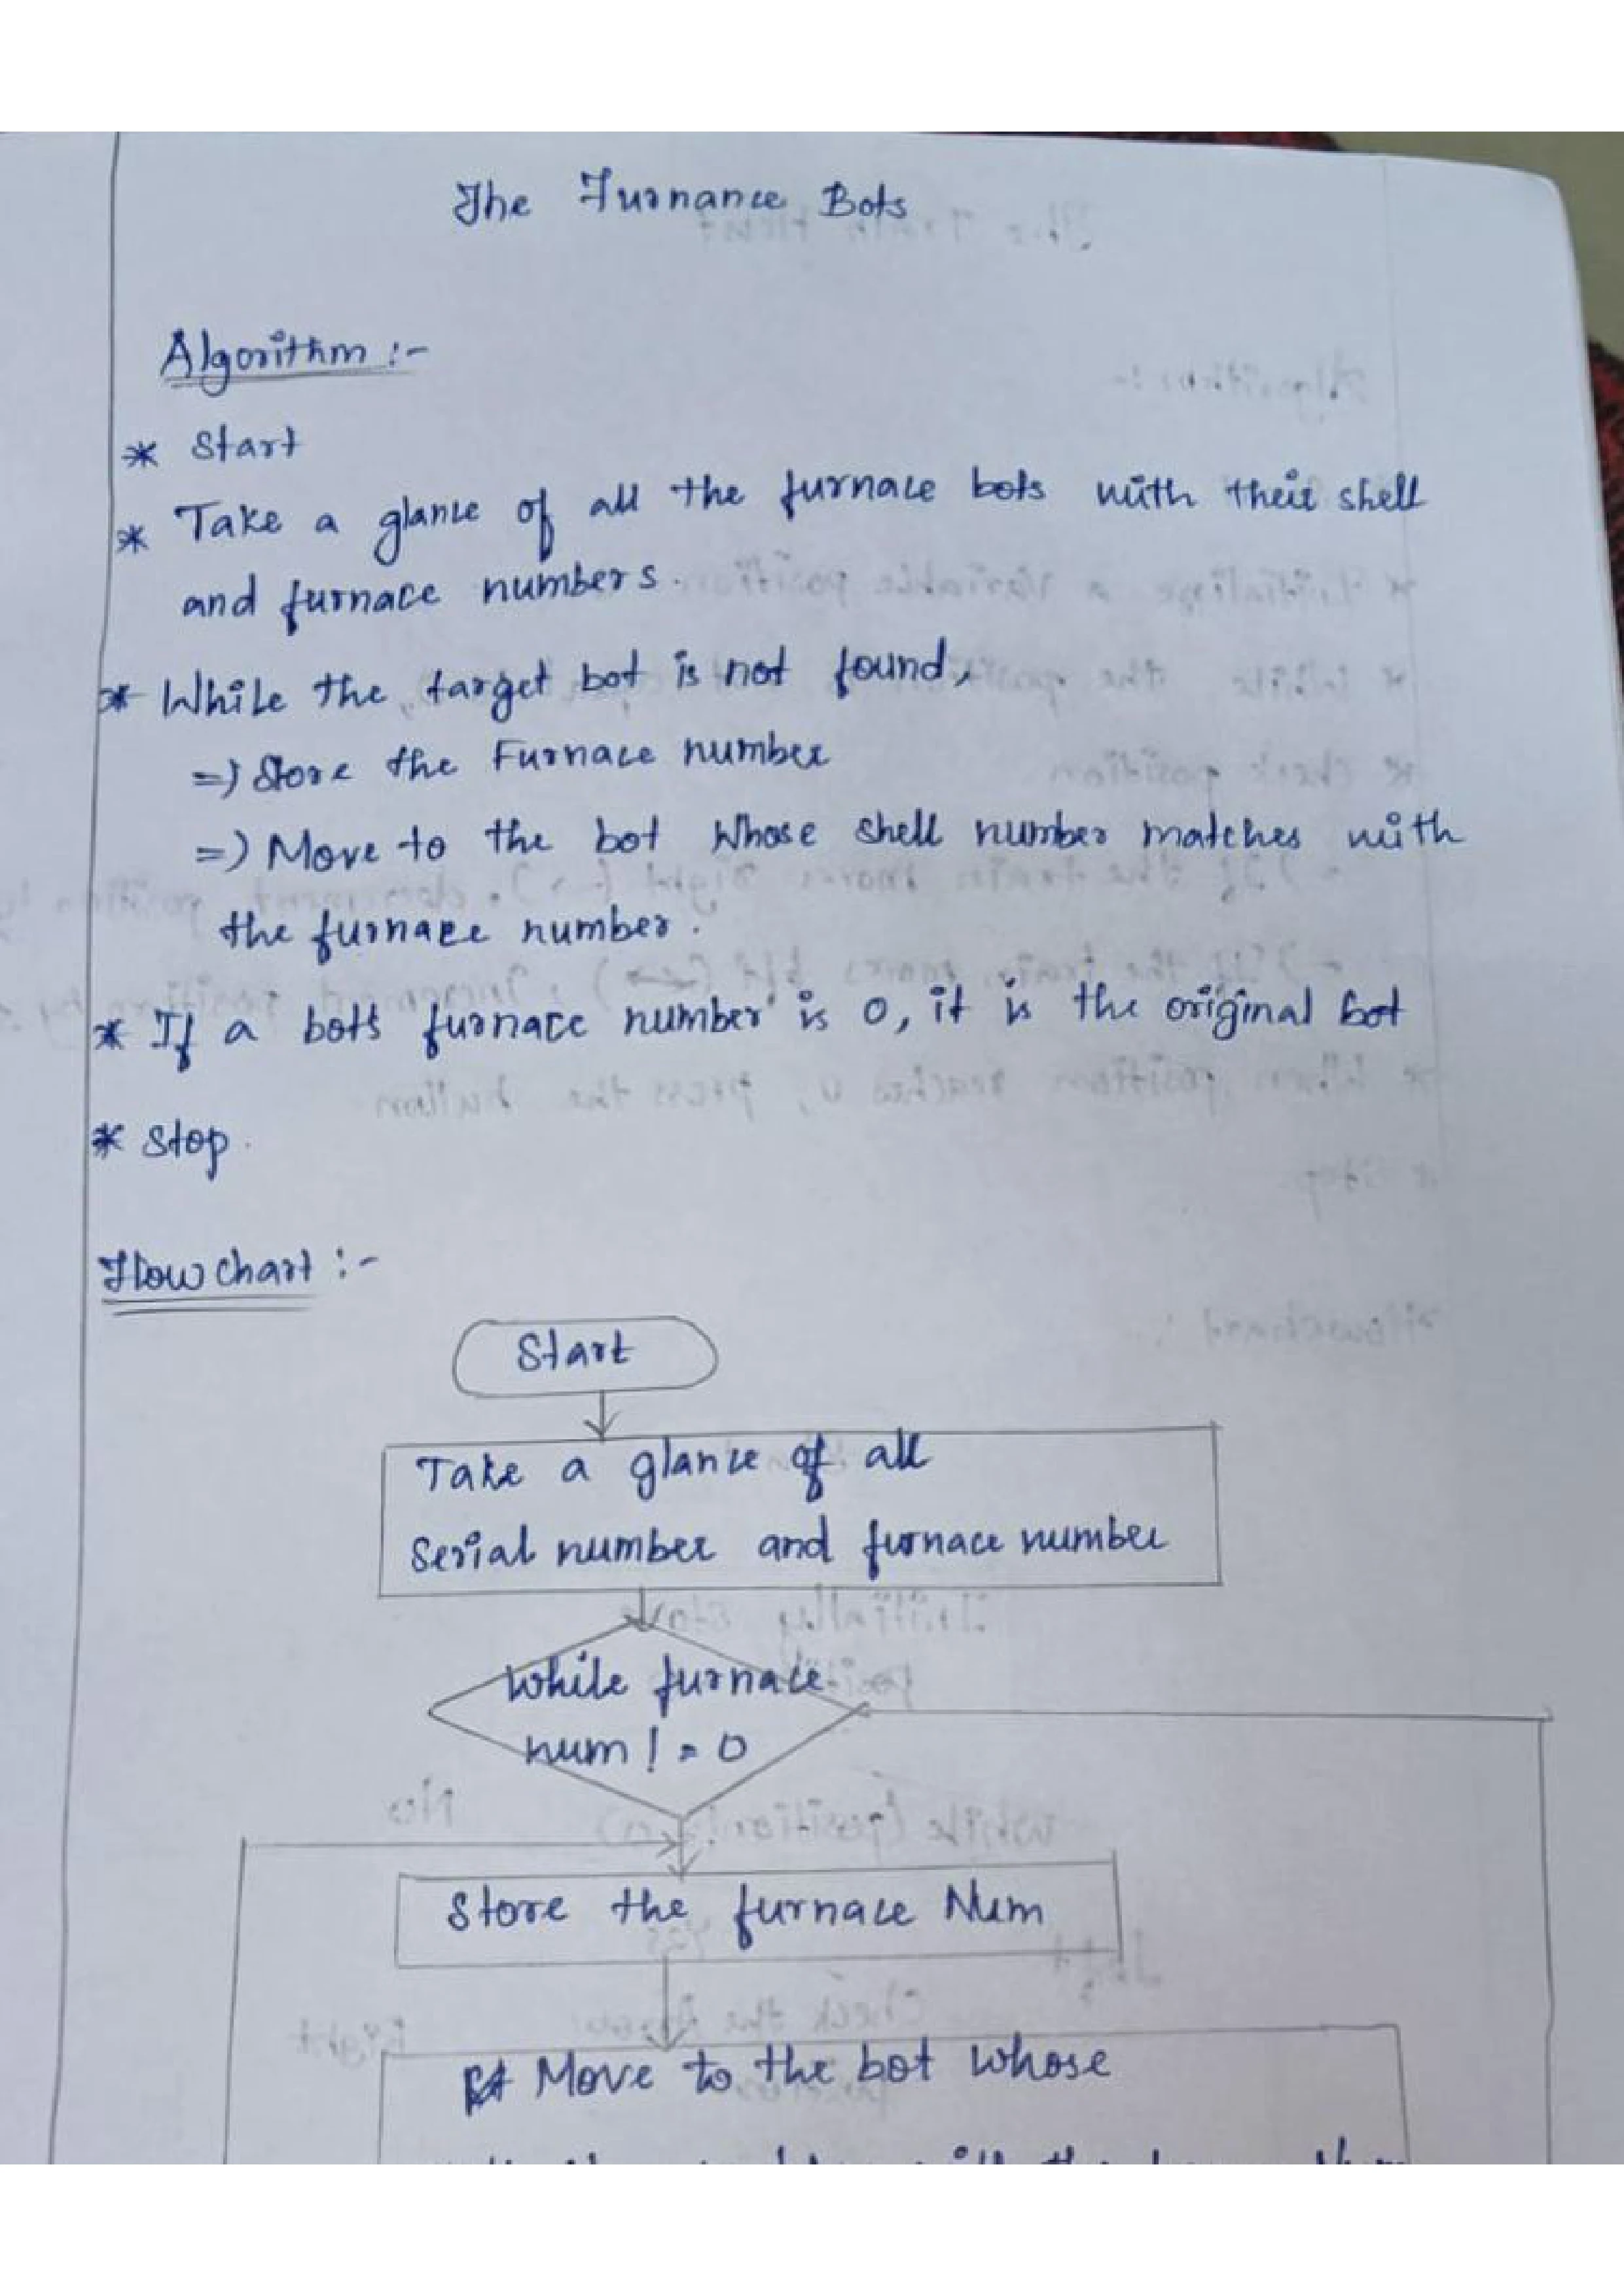 The Furnance Bots
Algorithm :-
* Start
* Take a glance of all the furnace bots with their shell
and furnace numbers.
* While the target bot is not found,
=> Store the Furnace number
=> Move to the bot whose shell number matches with
the furnace number.
* If a bots furnace number is 0, it is the original bot
* Stop.
Flow chart :-
Start
Take a glance of all
Serial number and furnace number
While furnace
num ! = 0
Store the furnace Num
Move to the bot whose